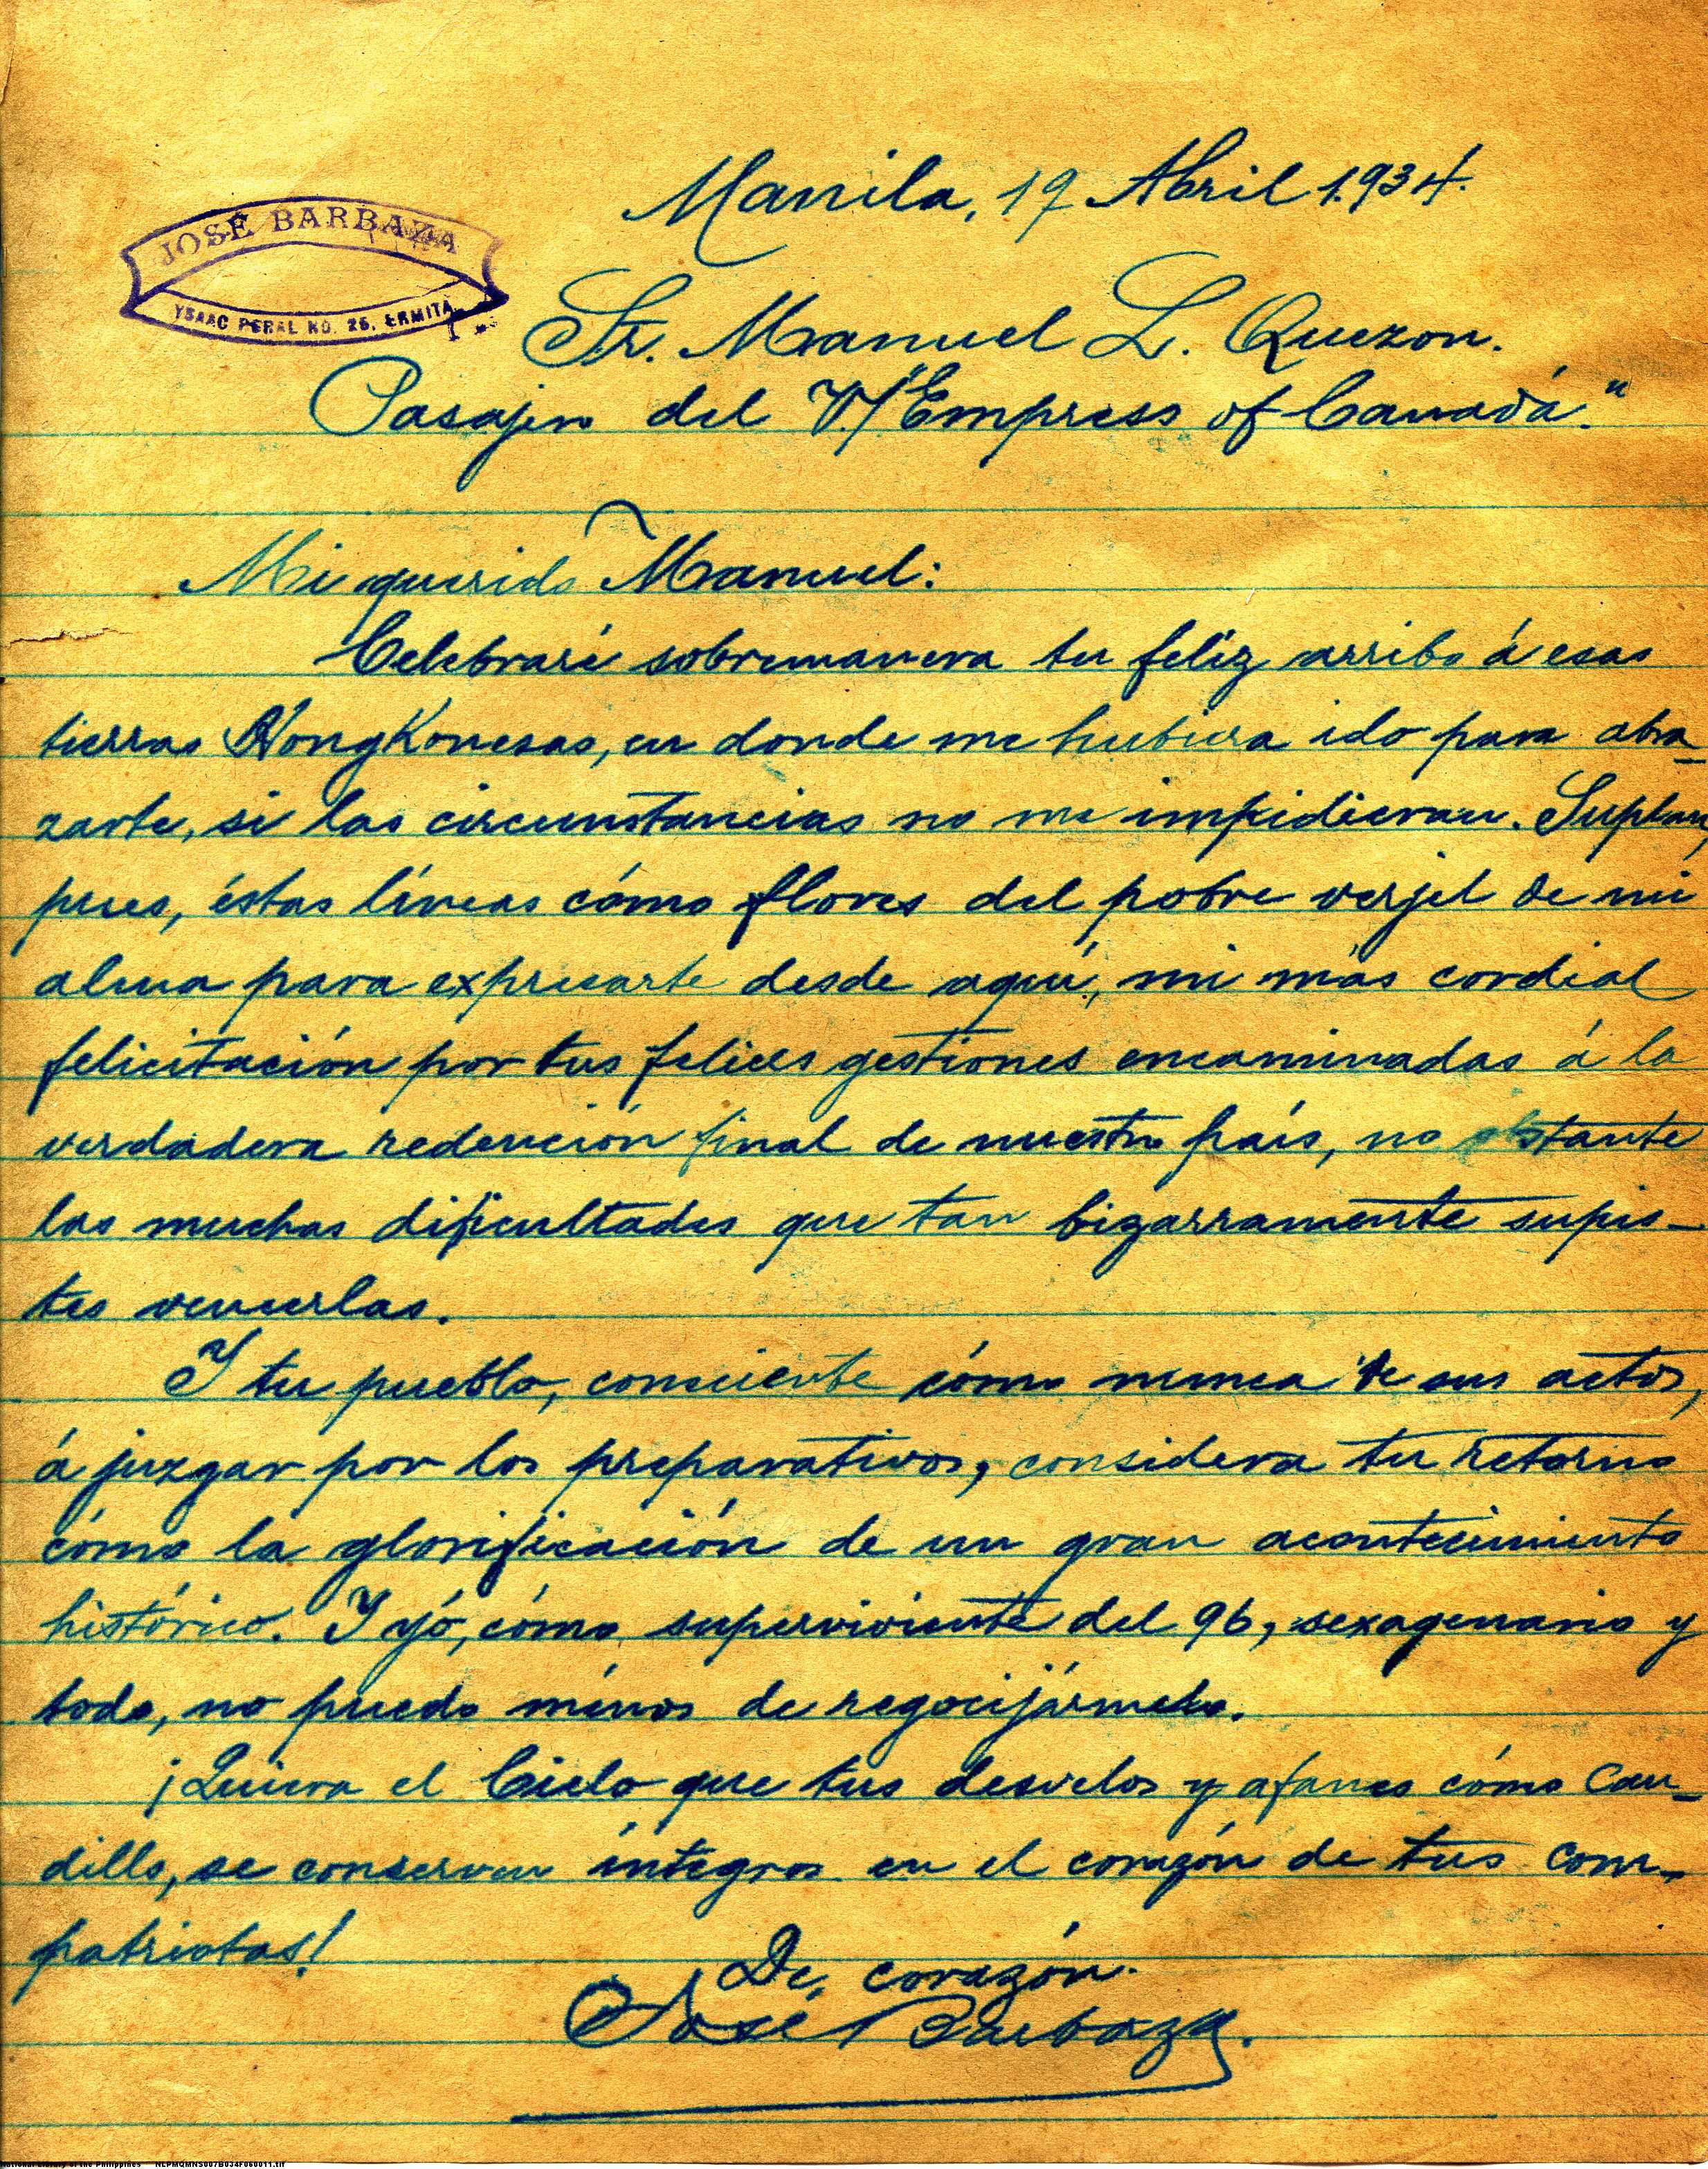 Manila, 19 Abril 1.934.
JOSÉ BARBAZA
YSAAC PERAL NO. 25, ERMITA
Sr. Manuel L. Quezon.
Pasajero del V./"Empress of Canadá."
Mi querido Manuel:
Celebraré sobremanera tu feliz arribo á esas
tierras HongKonesas, en donde me hubiera ido para abra-
zarte, si las circunstancias no me impidieran. Suplan,
pues, éstas líneas cómo flores del pobre verjel de mi
alma para expresarte desde aquí, mi más cordial
felicitación por tus felices gestiones encaminadas á la
verdadera redención final de nuestro país, no obstante
las muchas dificultades que tan bizarramente supis-
tes vencerlas.
Y tu pueblo, consciente cómo nunca de sus actos,
á juzgar por los preparativos, considera tu retorno
cómo la glorificación de un gran acontecimiento
histórico. Y yó, cómo superviviente del 96, sexagenario y
todo, no puedo ménos de regocijármelo.
¡Quiera el Cielo que tus desvelos y afanes cómo Cau-
dillo, se conserven íntegros en el corazón de tus com-
patriotas!
De corazón.
José Barbaza.
National Library of the Philippines NLPMQMNS007B034F060011.tif